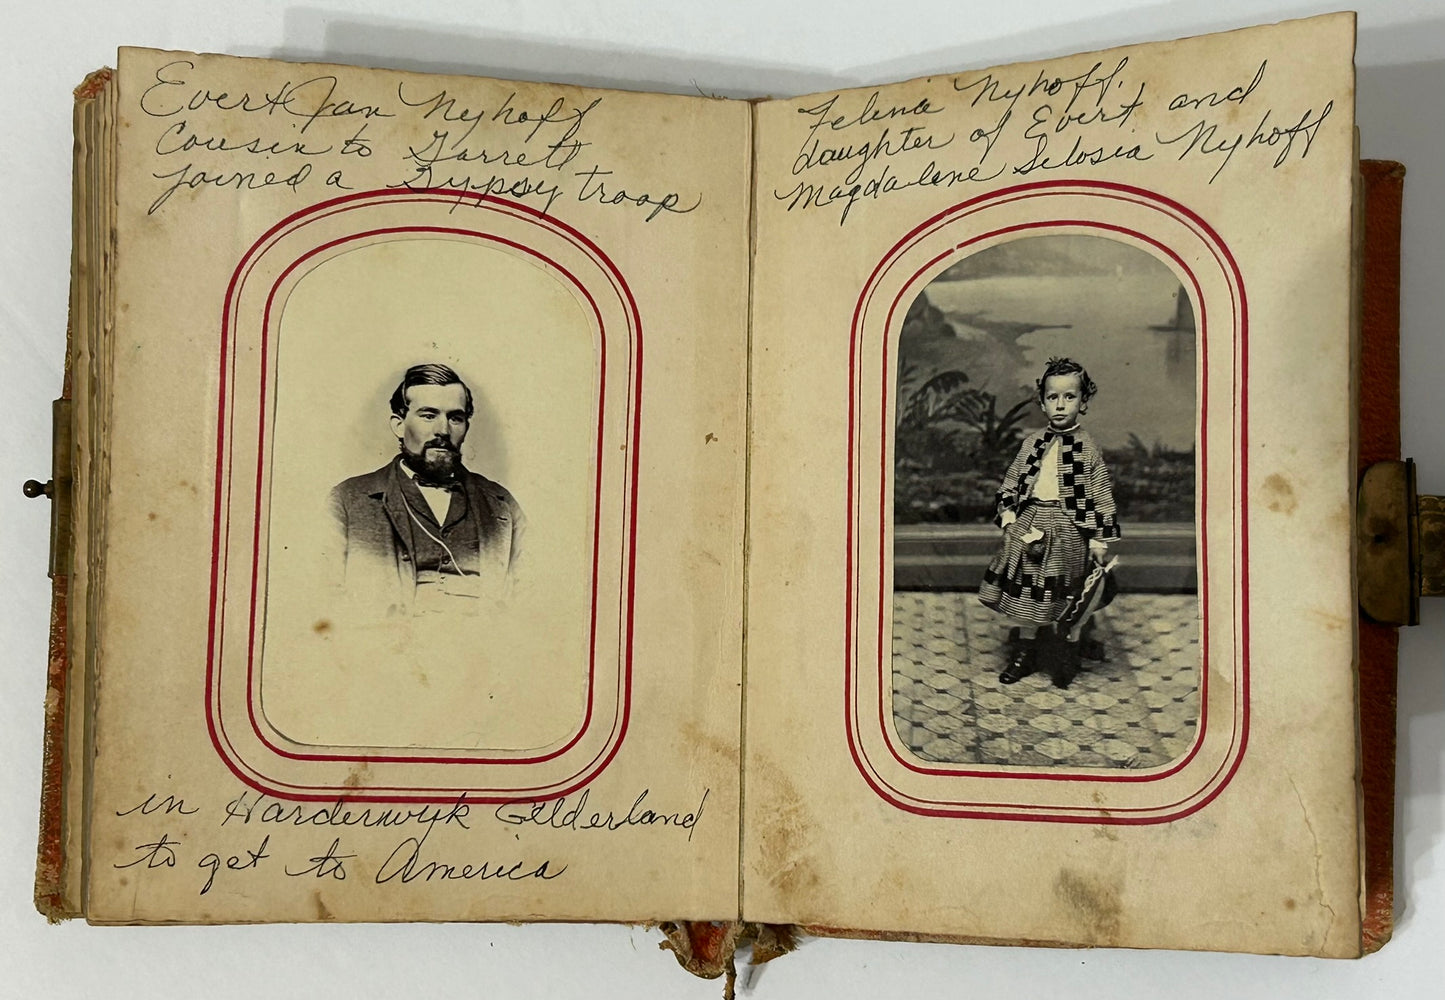 Evert Jan Nyhoff
Cousin to Garrett
joined a Gypsy troop
in Harderwyk Gelderland
to get to America
Felena Nyhoff.
daughter of Evert and
Magdalene Selosia Nyhoff